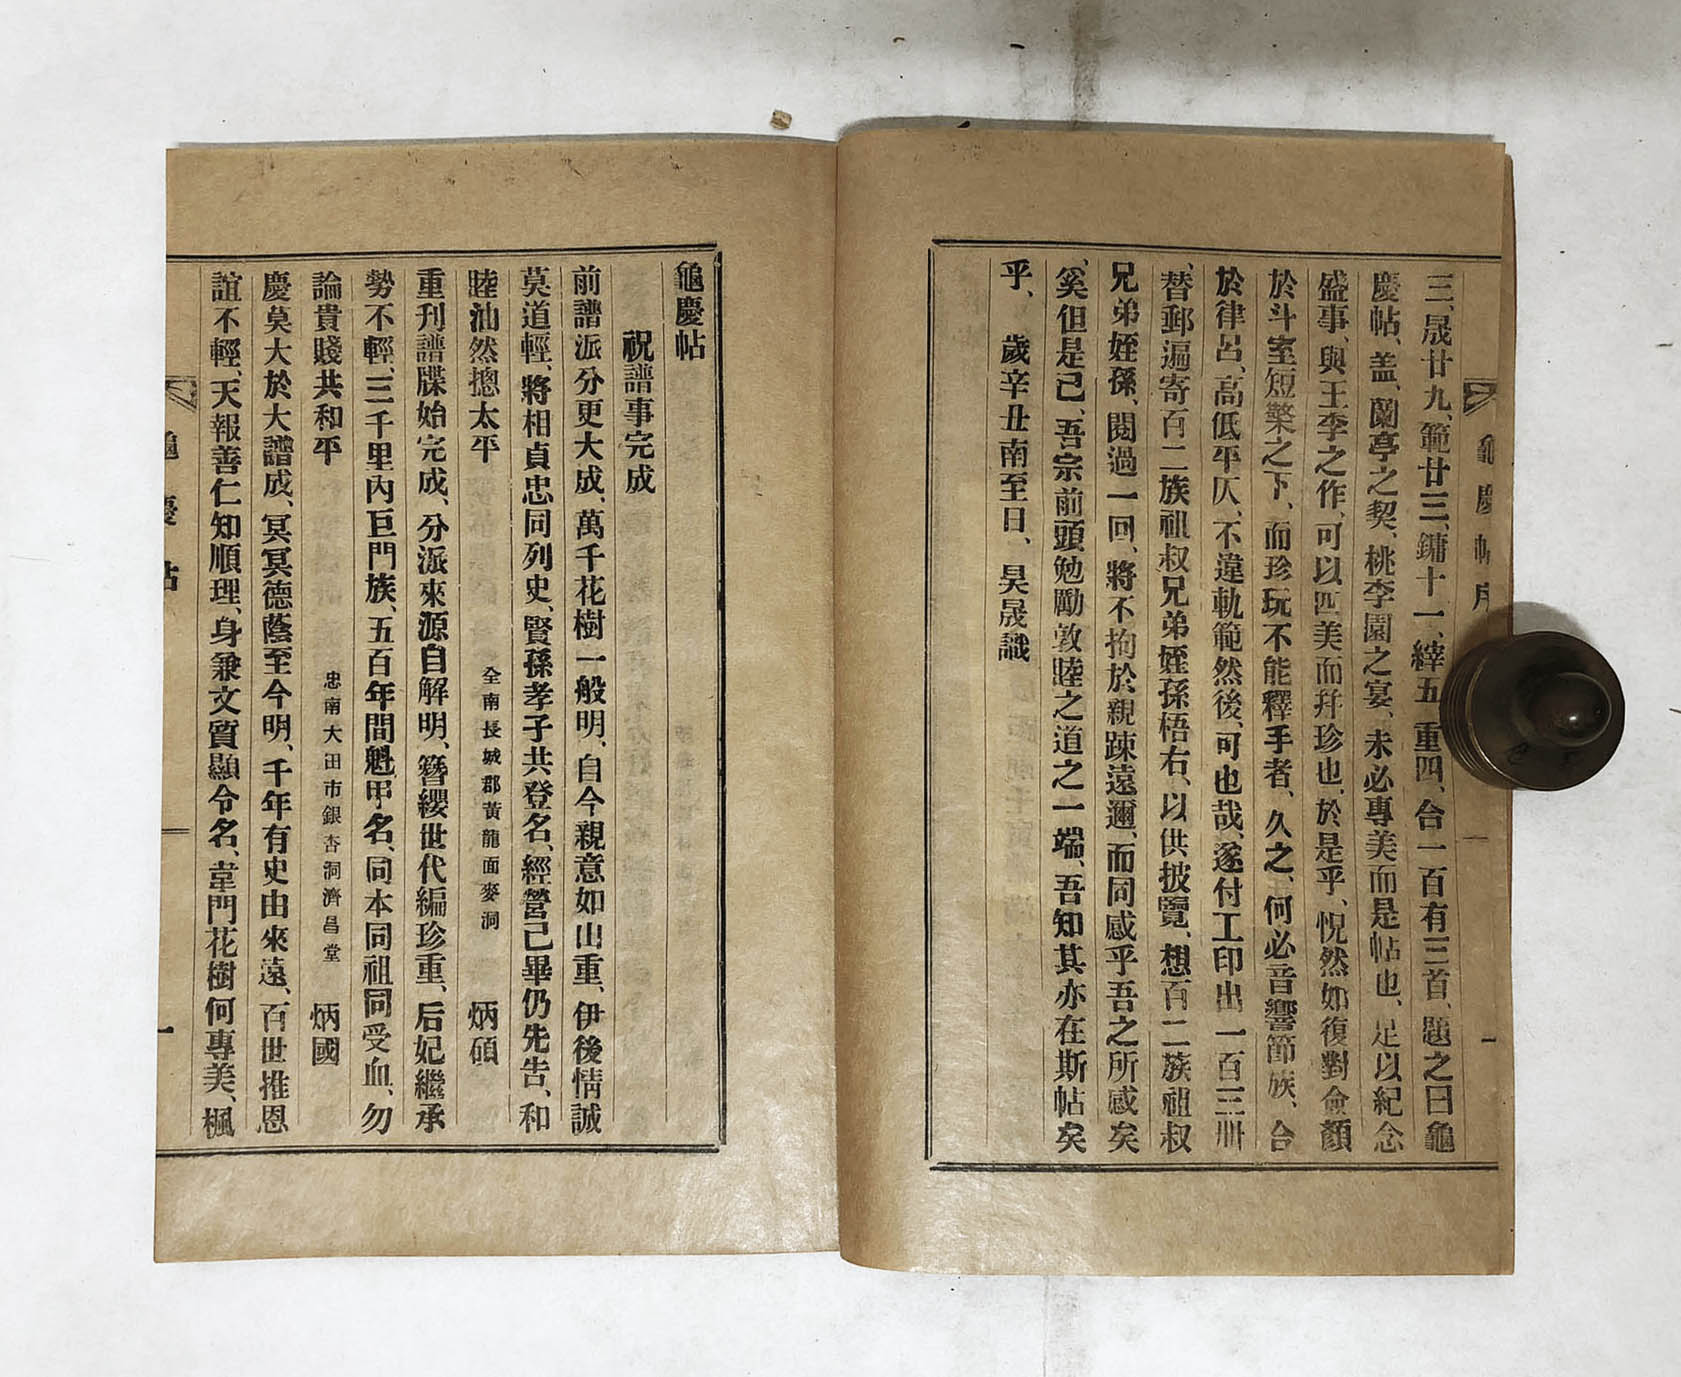 龜慶帖序
三、晟廿九、範廿三、鏞十一、縡五、重四、合一百有三首、題之曰龜
慶帖、盖、蘭亭之契、桃李園之宴、未必專美而是帖也、足以紀念
盛事、與王李之作、可以匹美而幷珍也、於是乎、怳然如復對僉顏
於斗室短檠之下、而珍玩不能釋手者、久之、何必音響節族、合
於律呂、高低平仄、不違軌範然後、可也哉、遂付工印出一百三卌
、替郵遍寄百二族祖叔兄弟姪孫梧右、以供披覽、想百二族祖叔
兄弟姪孫、閱過一回、將不拘於親踈遠邇、而同感乎吾之所感矣
、奚但是已、吾宗前頭勉勵敦睦之道之一端、吾知其亦在斯帖矣
乎、 歲辛丑南至日、昊晟識
一
龜慶帖
祝譜事完成
前譜派分更大成、萬千花樹一般明、自今親意如山重、伊後情誠
莫道輕、將相貞忠同列史、賢孫孝子共登名、經營已畢仍先告、和
睦油然摠太平 全南長城郡黃龍面麥洞 炳碩
重刊譜牒始完成、分派來源自解明、簪纓世代編珍重、后妃繼承
勢不輕、三千里內巨門族、五百年間魁甲名、同本同祖同受血、勿
論貴賤共和平 忠南大田市銀杏洞濟昌堂 炳國
慶莫大於大譜成、冥冥德蔭至今明、千年有史由來遠、百世推恩
誼不輕、天報善仁知順理、身兼文質顯令名、韋門花樹何專美、楓
龜慶帖
一